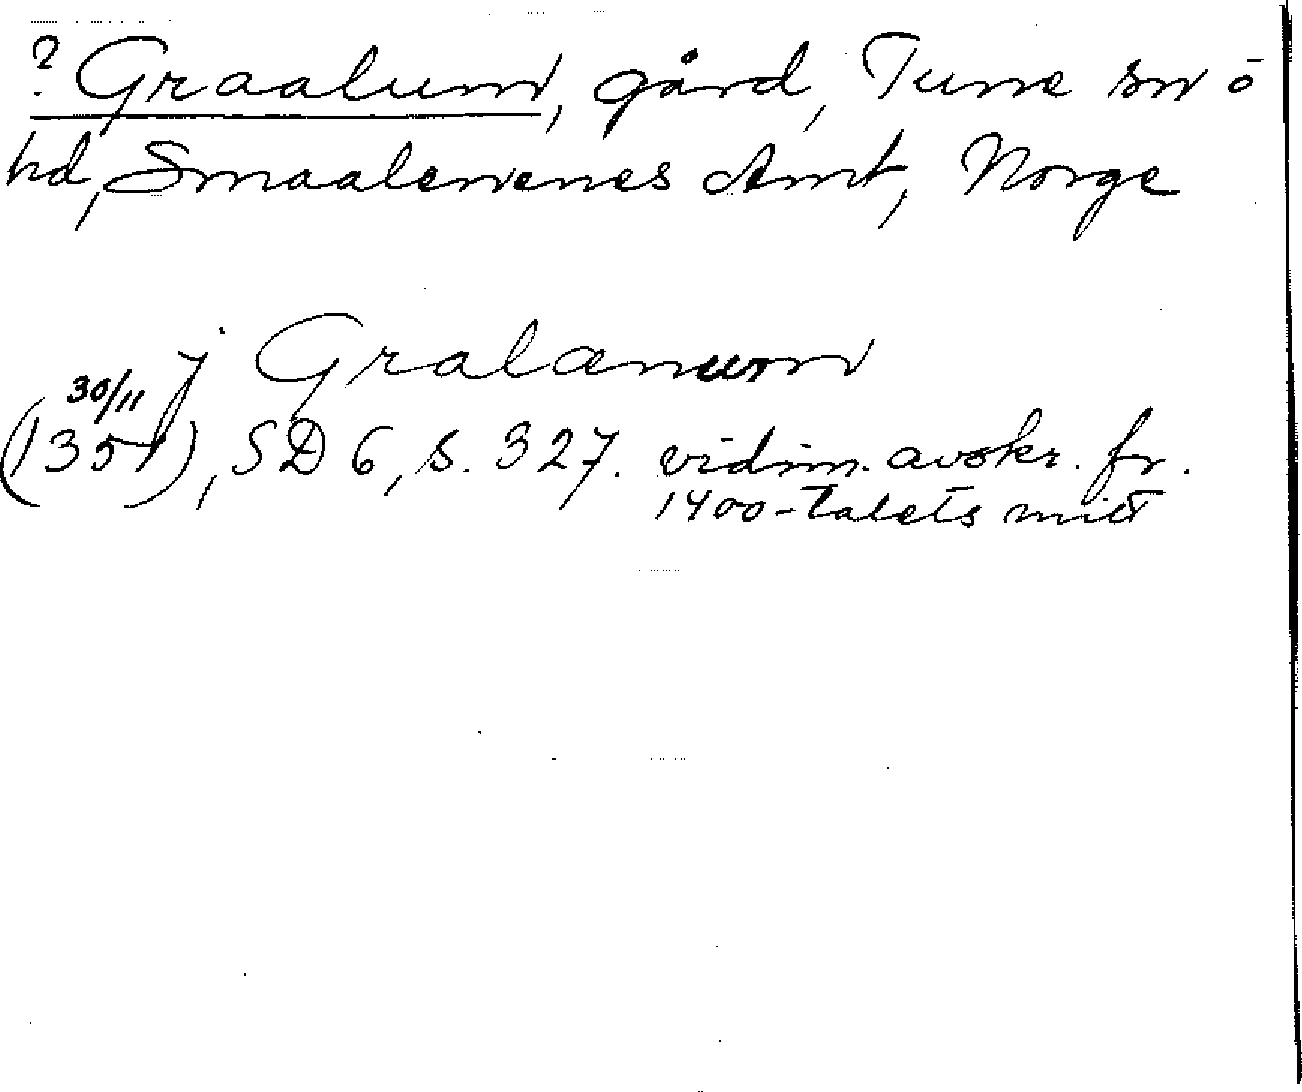 ? Graalum, gård, Tune sn ō
hd, Smaalenenes Amt, Norge
j Gralanum
30/11
(1351), SD 6, s. 327. vidim. avskr. fr.
1400-talets mitt